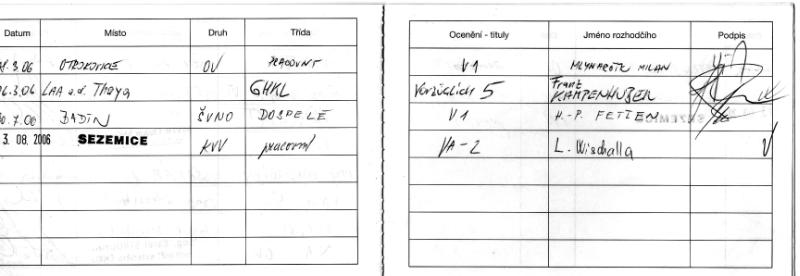 Datum Místo Druh Třída
.3.06 OTROKOVICE OV PRACOVNÍ
.3.06 LAA a.d. Thaya GHKL
.7.06 BADÍN ČVNO DOSPELÉ
3. 08. 2006 SEZEMICE KVV pracovní
Ocenění - tituly Jméno rozhodčího Podpis
V1 MILAN
Vorzüglich 5 Franz
KAMPENHUBER
V1 H.-P. FETTEN
VA-2 L. Wischalla